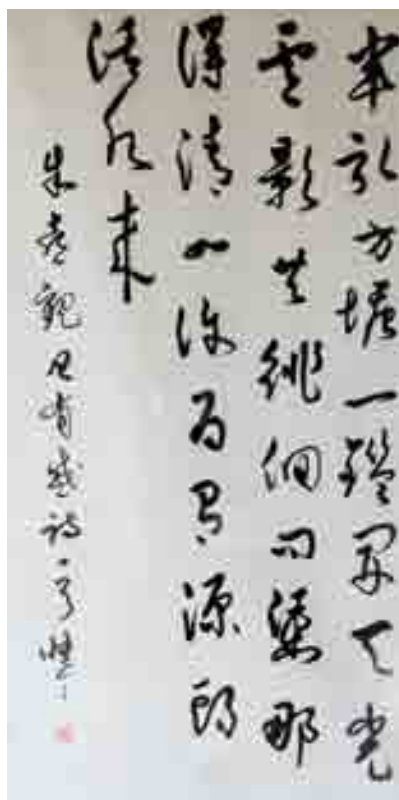 半畝方塘一鑑開天光
雲影共徘徊问渠那
得清如许为有源頭
活水来
朱熹觀书有感诗一首